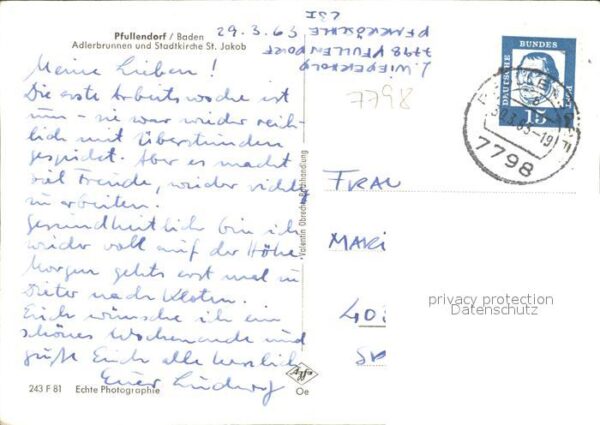 Pfullendorf / Baden
Adlerbrunnen und Stadtkirche St. Jakob
29.3.63
L. WIEDERHOLD
7798 PFULLENDORF
7798
Meine Lieben!
Die erste Arbeitswoche ist
um - sie war wieder reich-
lich mit Überstunden
gespickt. Aber es macht
viel Freude, wieder richtig
zu arbeiten.
Gesundheitlich bin ich
wieder voll auf der Höhe.
Morgen gehts erst mal zu
Dieter nach Kloten.
Euch wünsche ich ein
schönes Wochenende und
grüße Euch alle herzlich
Euer Ludwig
243 F 81 Echte Photographie
Valentin Obrecht, Buchhandlung
Agfa
Oe
DEUTSCHE BUNDESPOST
15
30.3.63-19
7798
FRAU
MARI
40
privacy protection
Datenschutz